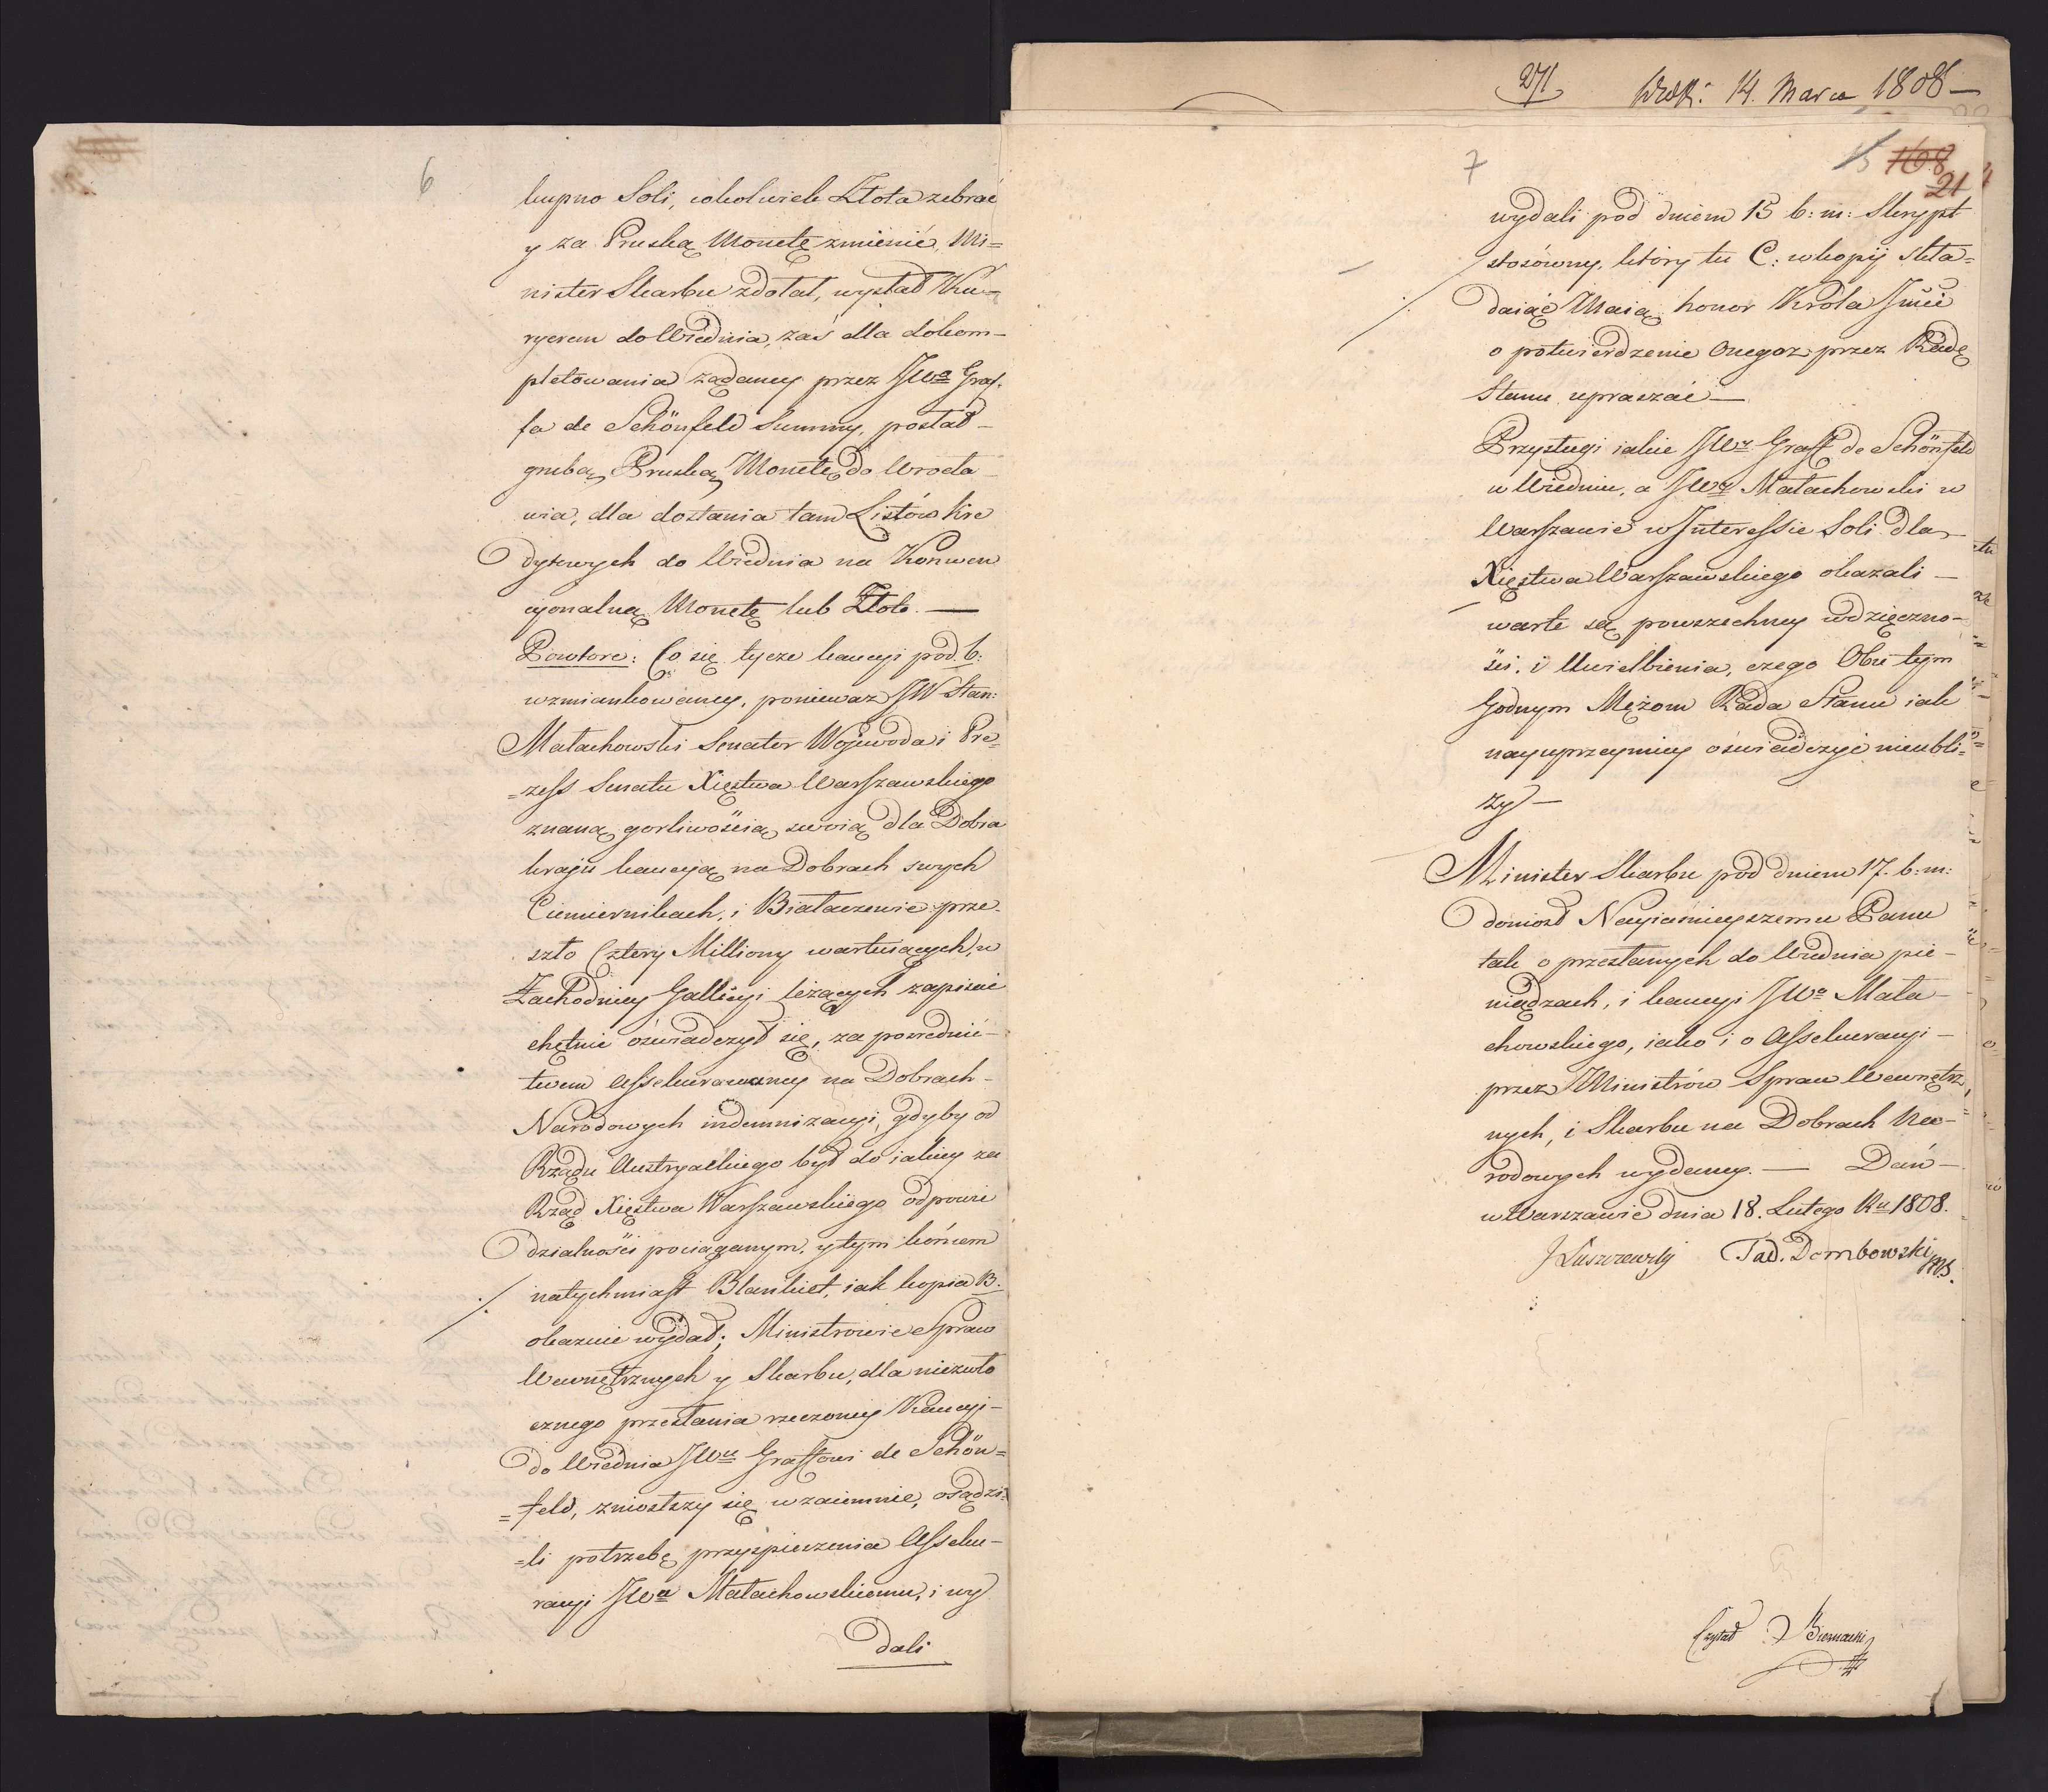 6
kupno Soli, cokolwiek Złota zebrać
y za Pruską Monetę zmienić, Mi=
nister Skarbu zdołał, wysłał Ku=
ryerem do Wiednia, zaś dla dokom-
pletowania żądaney przez JWo Graf-
fa de Schönfeld Summy, posłał -
grubą Pruską Monetę do Wrocła
wia, dla dostania tam Listów Kre
dytowych do Wiednia na Konwen
cyonalną Monetę lub Złoto. —
Powtore: Co się tycze kaucyi pod b:
wzmiankowaney, ponieważ JW Stan:
Małachowski Senator Wojewoda i Pre=
=zess Senatu Xięstwa Warszawskiego
znaną gorliwością swoią dla Dobra
kraju kaucyą na Dobrach swych
Ciemiernikach, i Białaczewie prze-
szło Cztery Milliony wartuiących, w
Zachodniey Gallicyi leżących zapisać
chętnie oświadczył się, za posrednic-
twem assekurowaney na Dobrach -
Narodowych indemnizacyi, gdyby od
Rządu Austryackiego był do iakiey za
Rząd Xięstwa Warszawskiego odpowie
dzialności pociąganym, y tym końcem
natychmiast Blankiet, iak kopia B.
okazuie wydał; Ministrowie Spraw
Wewnętrznych y Skarbu, dla niezwło
cznego przesłania rzeczoney Kaucyi -
do Wiednia JWu Graffowi de Schön=
=feld, zniosłszy się wzaiemnie, osądzi=
=li potrzebę przyspieszenia Asseku-
racyi JWu Małachowskiemu, i wy
dali
271 14. Marca 1808 —
7 15 168
21
wydali pod dniem 15 b: m: Skrypt
stosówny, który tu C: w kopij skła=
daiąc Maią honor Króla Jmci
o potwierdzenie onegoż przez Radę
Stanu upraszać —
Przysługi iakie JWy Graff de Schönfeld
w Wiedniu, a JWy Małachowski w
Warszawie w Interessie Soli dla -
Xięstwa Warszawskiego okazali —
warte są powszechney wdzięczno-
ści, i Uwielbienia, czego Obu tym
Godnym Mężom Rada Stanu iak
nayuprzeymiey oświadczyć nieubli=
ży —
Minister Skarbu pod dniem 17. b: m:
doniosł Nayiaśnieyszemu Panu
tak o przesłanych do Wiednia pie-
niądzach, i kaucyi JWo Mała-
chowskiego, iako i o Assekuracyi -
przez Ministrów Spraw Wewnętrz
nych, i Skarbu na Dobrach Na-
rodowych wydaney. — Dan -
w Warszawie dnia 18. Lutego Ru 1808.
J Łuszczewsky Tad. Dembowski MS.
Czytał Biernacki